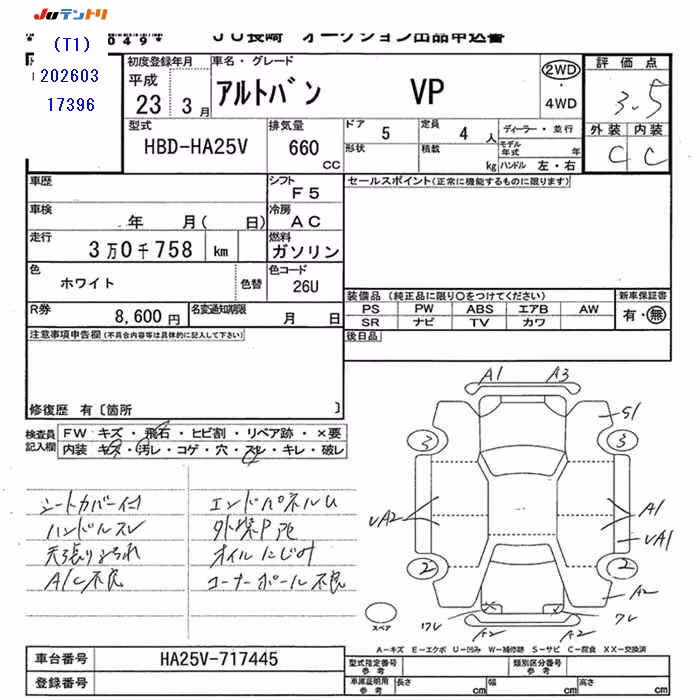 JUテントリ
049* JU長崎 オークション出品申込書
(T1)
202603
17396
初度登録年月
平成
23 3月
車名・グレード
アルトバン VP
2WD
・
4WD
評価点
3.5
外装 内装
C C
型式
HBD-HA25V
排気量
660
CC
ドア 5
定員 4 人
ディーラー・並行
形状
積載 kg
モデル年式 年
ハンドル 左・右
車歴
シフト
F5
セールスポイント(正常に機能するものに限ります)
車検
年 月( 日)
冷房
AC
走行
3万0千758 km
燃料
ガソリン
色
ホワイト
色替
色コード
26U
装備品 (純正品に限り○をつけてください)
新車保証書
PS PW ABS エアB AW
有・無
SR ナビ TV カワ
R券
8,600円
名変通知期限
月 日
後日品
注意事項申告欄(不具合内容等は具体的に記入して下さい)
修復歴 有〔箇所 〕
検査員
記入欄
FW キズ・飛石・ヒビ割・リペア跡・×要
内装 キズ・汚レ・コゲ・穴・スレ・キレ・破レ
シートカバー付
ハンドルスレ
天張りよごれ
A/C不良
エンドパネルU
オイルにじみ
コーナーポール不良
A1 A3
S1
3 3
VA2
A1
VA1
2 2
A2
ワレ ワレ
A2 A2
スペア
A-キズ E-エクボ U-凹み W-補修跡 S-サビ C-腐食 XX-交換済
車台番号
HA25V-717445
登録番号
型式指定番号
類別区分番号
車庫証明用参考
長さ cm
幅 cm
高さ cm